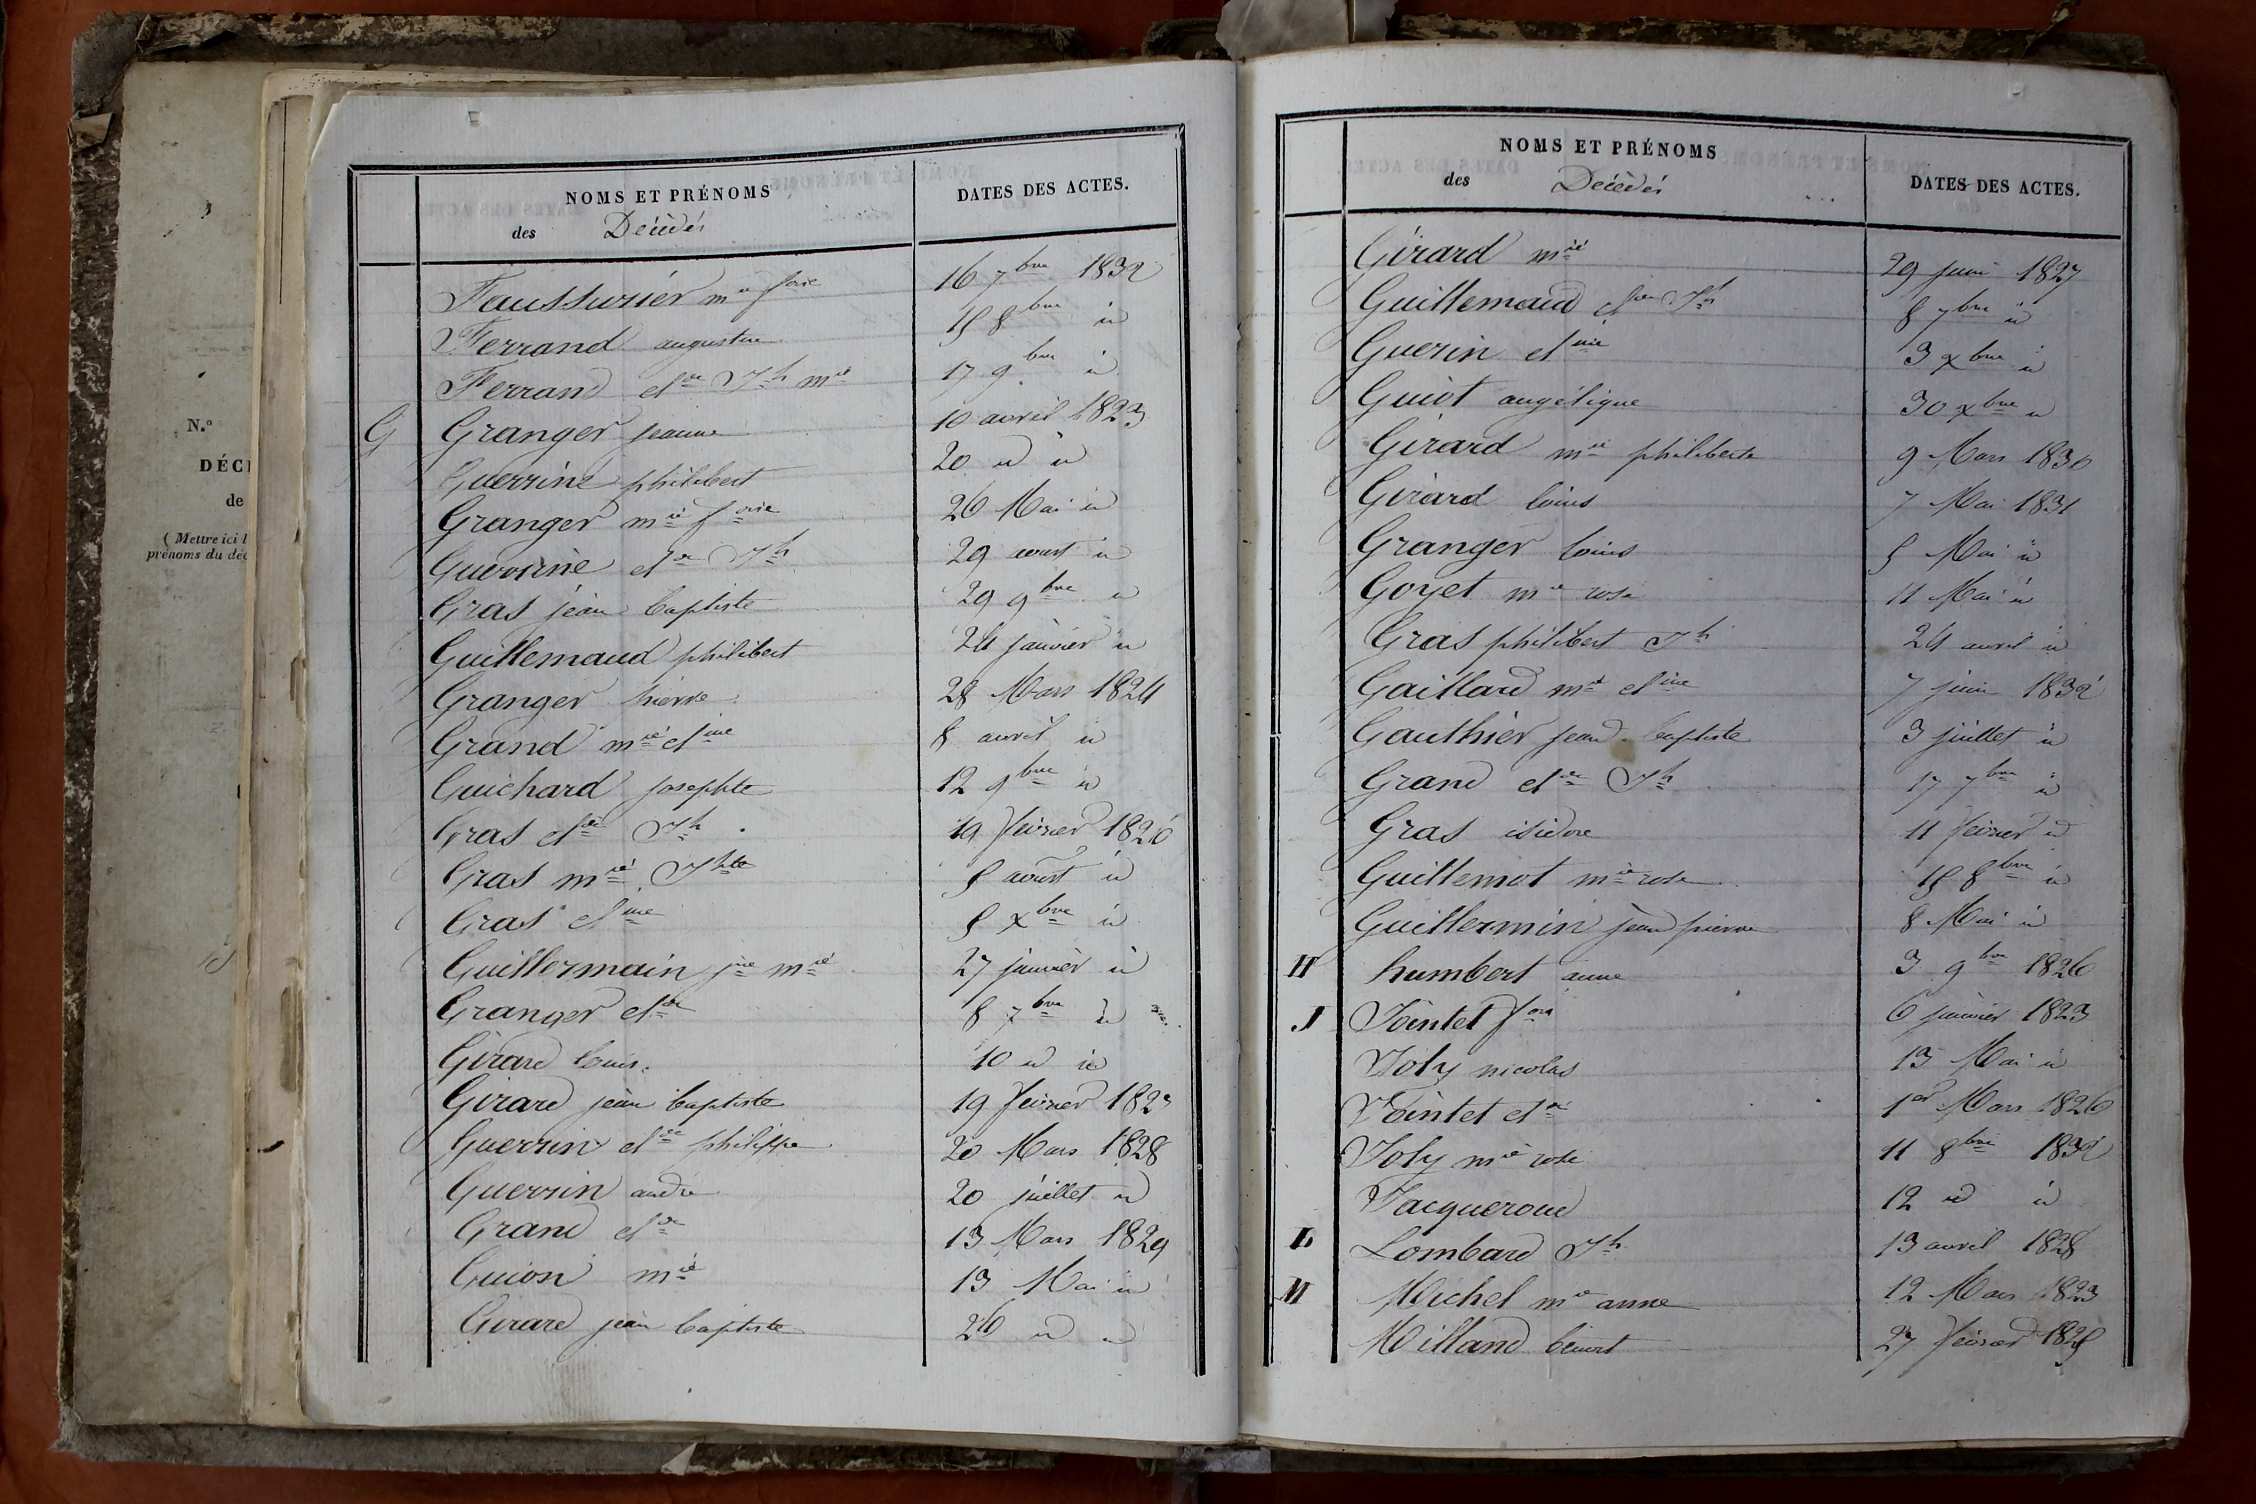 N.º
DÉCÈ
de
( Mettre ici l
prénoms du déc
NOMS ET PRÉNOMS
des Décèdés
DATES DES ACTES.
Faussurier mie foise 16 7bre 1832
Ferrand augustine 15 8bre id
Ferrand cl de Jh mie 17 9bre id
G Granger jeanne 10 avril 1823
Guerriné philibert 20 id id
Granger mie foise 26 Mai id
Guerriné clde Jh 29 aoust id
Gras jean baptiste 29 9bre id
Guillemaud philibert 24 janvier id
Granger pierre 28 Mars 1824
Grand mie cline 8 avril id
Guichard josephte 12 9bre id
Gras clde Jh 19 fevrier 1826
Gras mie Jhte 5 aoust id
Gras cline 5 xbre id
Guillermain jne mie 27 janvier id
Granger clde 8 7bre id
Girard louis 10 id id
Girard jean baptiste 19 fevrier 1827
Guerrin clde philippe 20 Mars 1828
Guerrin andre 20 juillet id
Grand clde 13 Mars 1829
Guion mie 13 Mai id
Girard jean baptiste 26 id id
NOMS ET PRÉNOMS
des Décèdés
DATES DES ACTES.
Girard mie 29 juin 1827
Guillemaud clde Jh 8 7bre id
Guerin cline 3 xbre id
Guiot angélique 30 xbre id
Girard mie philiberte 9 Mars 1830
Girard louis 7 Mai 1831
Granger louis 5 Mai id
Goyet mie rose 11 Mai id
Gras philibert Jh 24 avril id
Gaillard mie cline 7 juin 1832
Gauthier jean baptiste 3 juillet id
Grand clde Jh 17 7bre id
Gras isidore 11 fevrier id
Guillemot mie rose 15 8bre id
Guillermin jean pierre 8 Mai id
H humbert anne 3 9bre 1826
J Jointet fois 6 janvier 1823
Joly nicolas 13 Mai id
Jointet clde 1er Mars 1826
Joly mie rose 11 8bre 1832
Jacqueroud 12 id id
L Lombard Jh 13 avril 1828
M Michel mie anne 12 Mars 1823
Milland benoit 27 fevrier 1825